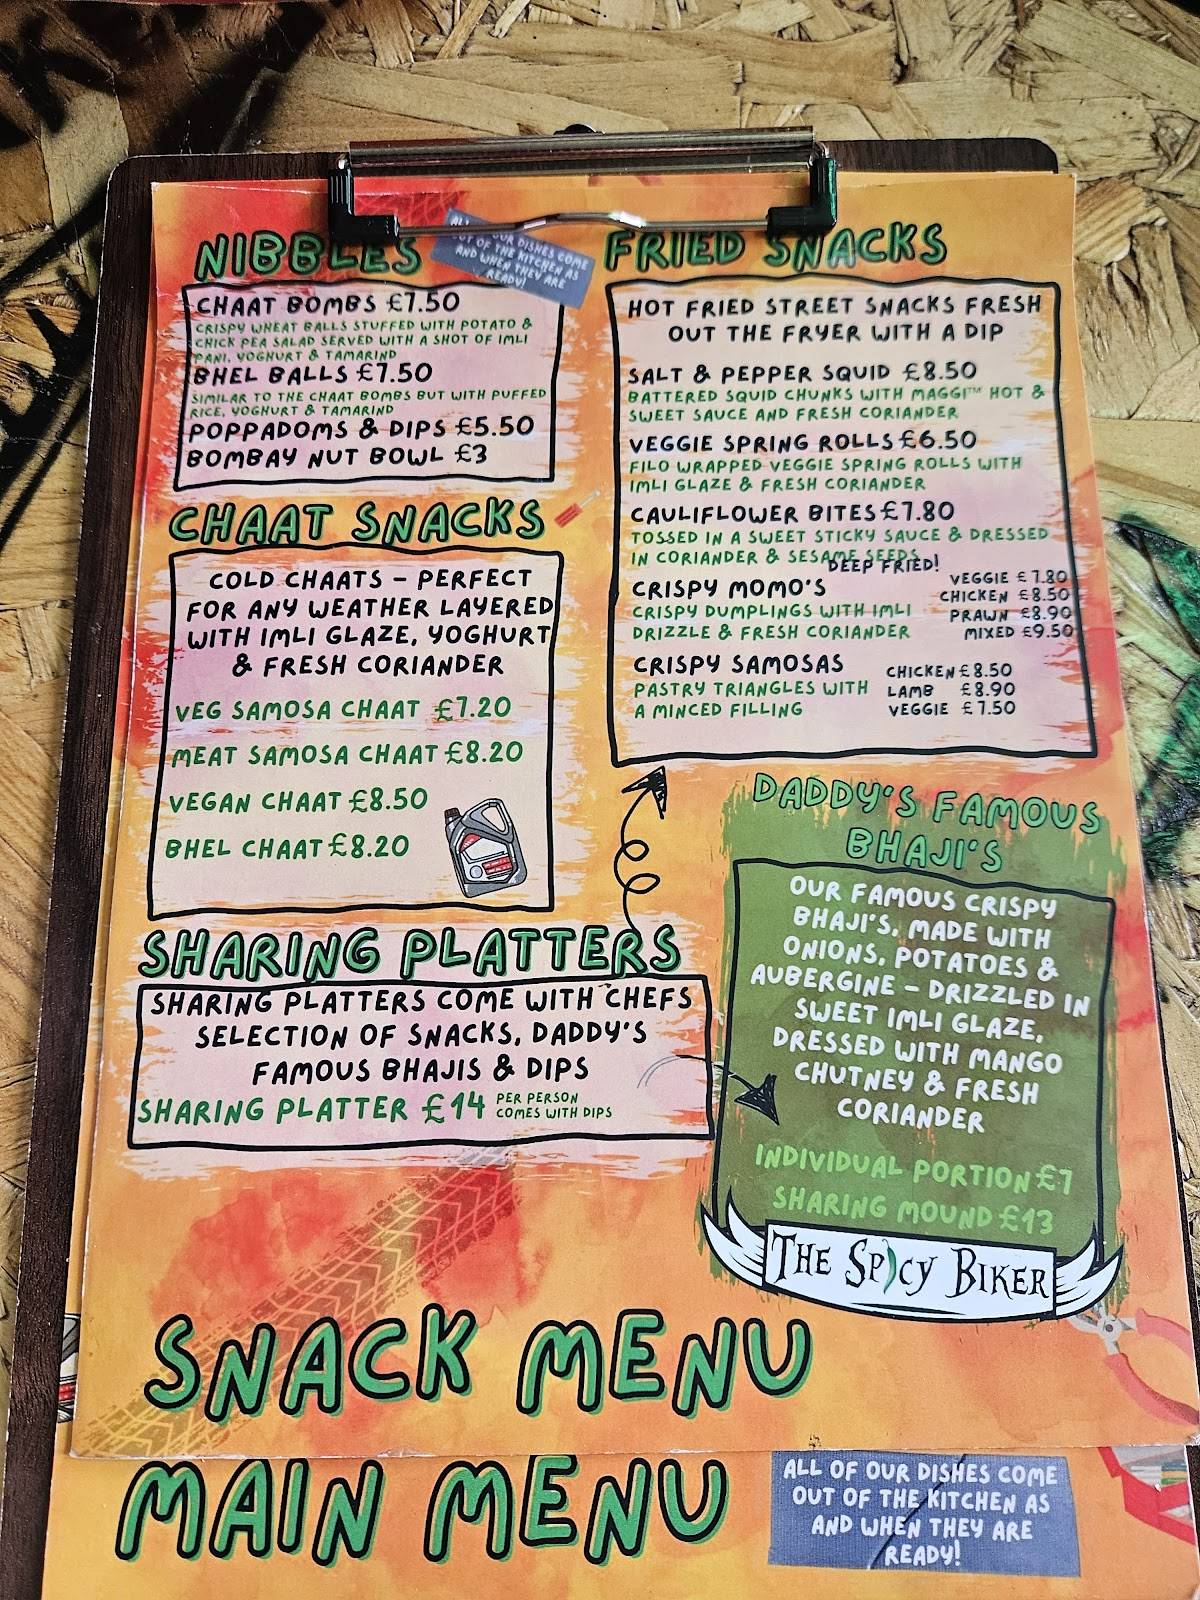 NIBBLES
ALL OF OUR DISHES COME
OUT OF THE KITCHEN AS
AND WHEN THEY ARE
READY!
CHAAT BOMBS £7.50
CRISPY WHEAT BALLS STUFFED WITH POTATO &
CHICK PEA SALAD SERVED WITH A SHOT OF IMLI
PANI, YOGHURT & TAMARIND
BHEL BALLS £7.50
SIMILAR TO THE CHAAT BOMBS BUT WITH PUFFED
RICE, YOGHURT & TAMARIND
POPPADOMS & DIPS £5.50
BOMBAY NUT BOWL £3
CHAAT SNACKS
COLD CHAATS – PERFECT
FOR ANY WEATHER LAYERED
WITH IMLI GLAZE, YOGHURT
& FRESH CORIANDER
VEG SAMOSA CHAAT £7.20
MEAT SAMOSA CHAAT £8.20
VEGAN CHAAT £8.50
BHEL CHAAT £8.20
SHARING PLATTERS
SHARING PLATTERS COME WITH CHEFS
SELECTION OF SNACKS, DADDY'S
FAMOUS BHAJIS & DIPS
SHARING PLATTER £14 PER PERSON
COMES WITH DIPS
FRIED SNACKS
HOT FRIED STREET SNACKS FRESH
OUT THE FRYER WITH A DIP
SALT & PEPPER SQUID £8.50
BATTERED SQUID CHUNKS WITH MAGGI™ HOT &
SWEET SAUCE AND FRESH CORIANDER
VEGGIE SPRING ROLLS £6.50
FILO WRAPPED VEGGIE SPRING ROLLS WITH
IMLI GLAZE & FRESH CORIANDER
CAULIFLOWER BITES £7.80
TOSSED IN A SWEET STICKY SAUCE & DRESSED
IN CORIANDER & SESAME SEEDS
DEEP FRIED!
CRISPY MOMO'S
CRISPY DUMPLINGS WITH IMLI
DRIZZLE & FRESH CORIANDER
VEGGIE £7.80
CHICKEN £8.50
PRAWN £8.90
MIXED £9.50
CRISPY SAMOSAS
PASTRY TRIANGLES WITH
A MINCED FILLING
CHICKEN £8.50
LAMB £8.90
VEGGIE £7.50
DADDY'S FAMOUS
BHAJI'S
OUR FAMOUS CRISPY
BHAJI'S, MADE WITH
ONIONS, POTATOES &
AUBERGINE – DRIZZLED IN
SWEET IMLI GLAZE,
DRESSED WITH MANGO
CHUTNEY & FRESH
CORIANDER
INDIVIDUAL PORTION £7
SHARING MOUND £13
THE SPICY BIKER
SNACK MENU
MAIN MENU
ALL OF OUR DISHES COME
OUT OF THE KITCHEN AS
AND WHEN THEY ARE
READY!